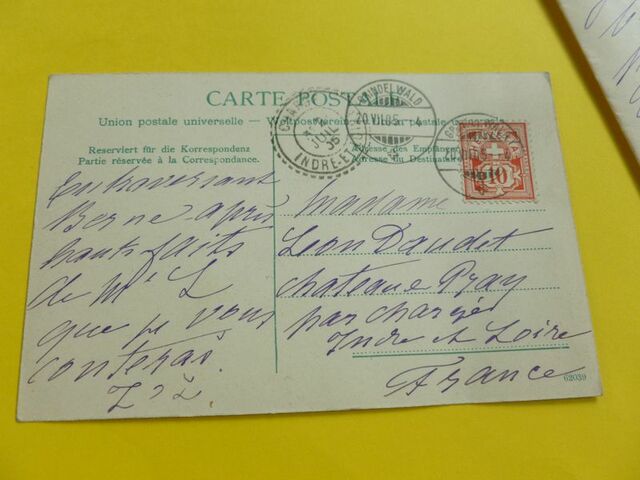 CARTE POSTALE
Union postale universelle — Weltpostverein postale
Reserviert für die Korrespondenz
Partie réservée à la Correspondance.
Adresse des
Adresse du Destinataire
GRINDELWALD
20.VII.05. - 4
INDRE-ET
JUIL
05
10
En traversant
Berne après
hauts faits
de Mr L
que je vous
conterai.
Madame
Léon Daudet
chateau Pray
par chargé
Indre et Loire
France
62039